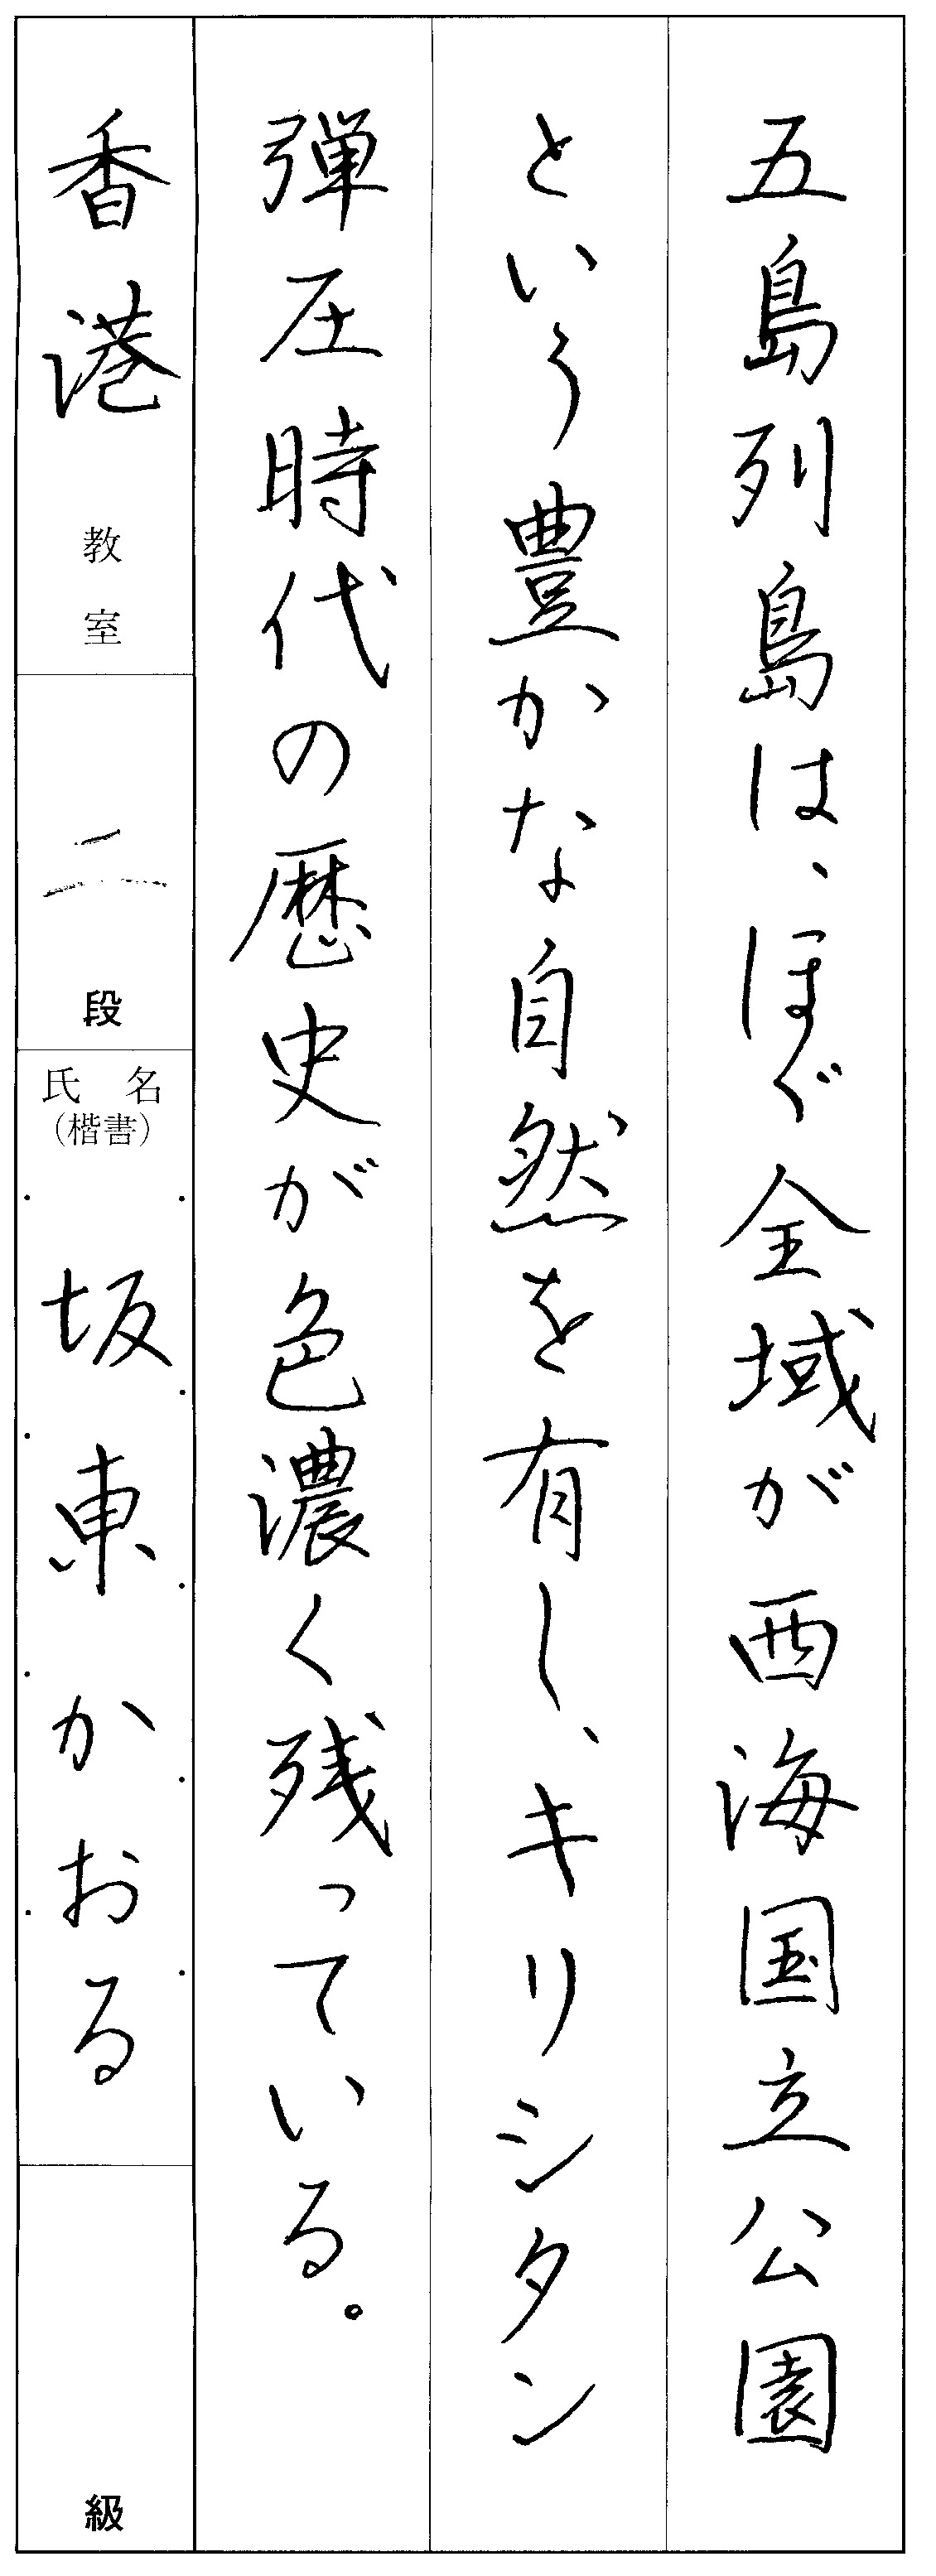 五島列島は、ほゞ全域が西海国立公園
という豊かな自然を有し、キリシタン
弾圧時代の歴史が色濃く残っている。
香港教室
二段
氏名
(楷書)
坂東かおる
級